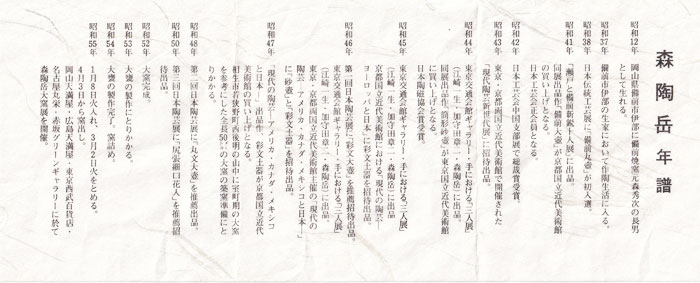 森陶岳年譜
昭和12年 岡山県備前市伊部に備前焼窯元森秀次の長男
として生れる。
昭和37年 備前市伊部の生家において作陶生活に入る。
昭和38年 日本伝統工芸展に、「備前丸壺」が初入選。
昭和41年 「瀬戸と備前新鋭十人展」に出品。
同展出品作、「備前大壺」が京都国立近代美術館
の買い上げとなる。
日本工芸会正会員となる。
昭和42年 日本工芸会中国支部展で総裁賞受賞。
昭和43年 東京・京都両国立近代美術館で開催された
「現代陶芸の新世代展」に招待出品。
昭和44年 東京交通会館ギャラリー・手における「三人展」
(江崎一生・加守田章二・森陶岳)に出品
同展出品作、「筒形砂壺」が東京国立近代美術館
に買い上げとなる。
日本陶磁協会賞受賞。
昭和45年 東京交通会館ギャラリー・手における「三人展」
(江崎一生・加守田章二・森陶岳)に出品
京都国立近代美術館における「現代の陶芸—
ヨーロッパと日本—」に彩文土器を招待出品。
昭和46年 第一回日本陶芸展に「彩文大壺」を推薦招待出品。
東京交通会館ギャラリー・手における「三人展」
(江崎一生・加守田章二・森陶岳)に出品
東京・京都両国立近代美術館主催の「現代の
陶芸 アメリカ・カナダ・メキシコと日本—」
に「砂壺」と「彩文土器」を招待出品。
昭和47年 「現代の陶芸—アメリカ・カナダ・メキシコ
と日本—」出品作、彩文土器が京都国立近代
美術館の買い上げとなる。
相生市若狭野町西後明の山中に室町期の大窯
を参考にした全長50m の大窯の築窯準備にと
りかかる。
昭和48年 第二回日本陶芸展に、「丸文大壺」を推薦出品。
昭和50年 第三回日本陶芸展に、「尻張細口花人」を推薦招
待出品。
昭和52年 大窯完成。
昭和53年 大甕の製作にとりかかる。
昭和54年 大甕の製作完了。窯詰め。
昭和55年 1月8日火入れ、3月2日火をとめる。
4月3日から窯出し。
岡山天満屋・広島天満屋・東京西武百貨店・
名古屋丸栄・赤坂グリーンギャラリーに於て
森陶岳大窯展を開催。